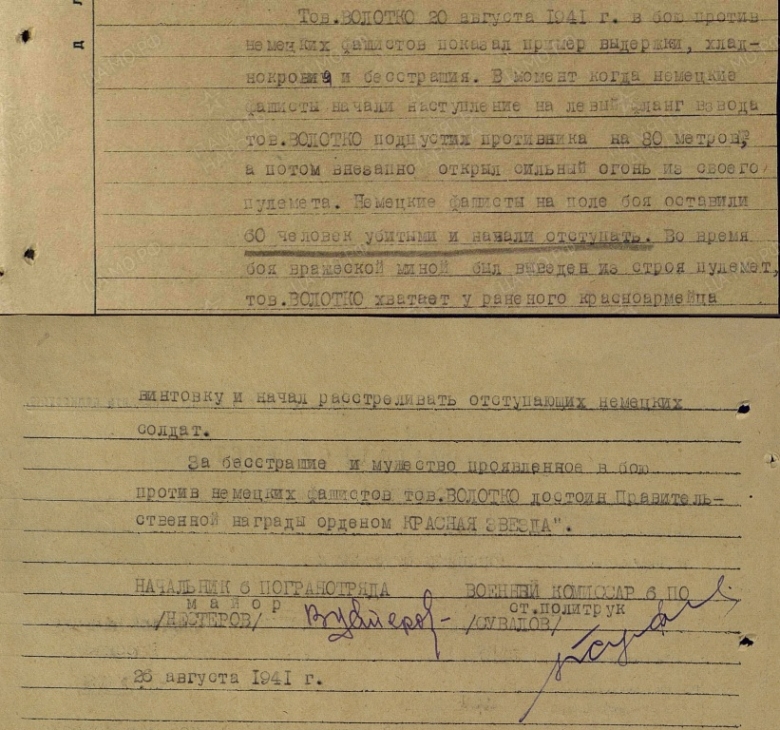 Д Л
Тов.ВОЛОТКО 20 августа 1941 г. в бою против
немецких фашистов показал пример выдержки, хлад-
нокровия и бесстрашия. В момент когда немецкие
фашисты начали наступление на левый фланг взвода
тов.ВОЛОТКО подпустил противника на 80 метров,
а потом внезапно открыл сильный огонь из своего
пулемета. Немецкие фашисты на поле боя оставили
60 человек убитыми и начали отступать. Во время
боя вражеской миной был выведен из строя пулемет,
тов.ВОЛОТКО хватает у раненого красноармейца
винтовку и начал расстреливать отступающих немецких
солдат.
За бесстрашие и мужество проявленное в бою
против немецких фашистов тов.ВОЛОТКО достоин Правитель-
ственной награды орденом КРАСНАЯ ЗВЕЗДА".
НАЧАЛЬНИК 6 ПОГРАНОТРЯДА ВОЕННЫЙ КОМИССАР 6 ПО
майор ст.политрук
/НЕСТЕРОВ/ /СУВАЛОВ/
26 августа 1941 г.